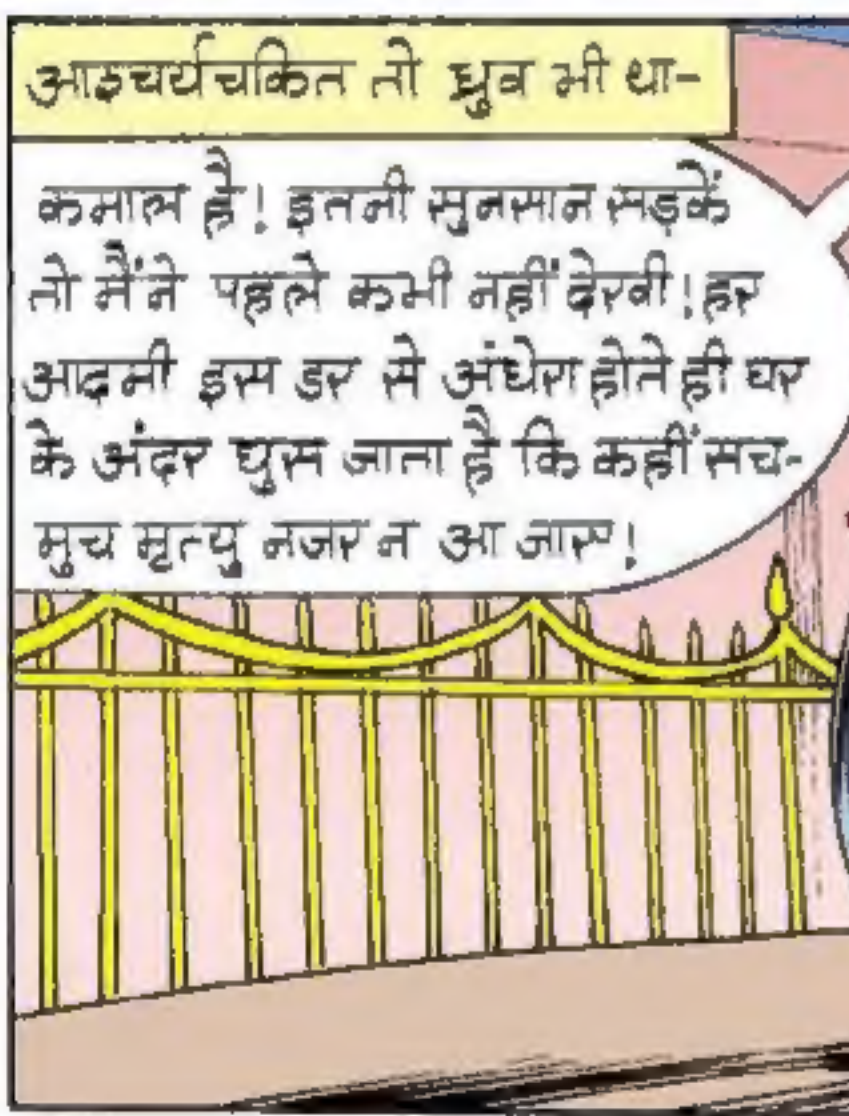 आश्चर्यचकित तो ध्रुव भी था-
कमाल है! इतनी सुनसान सड़कें
तो मैंने पहले कभी नहीं देखी! हर
आदमी इस डर से अंधेरा होते ही घर
के अंदर घुस जाता है कि कहीं सच-
मुच मृत्यु नजर न आ जाए!